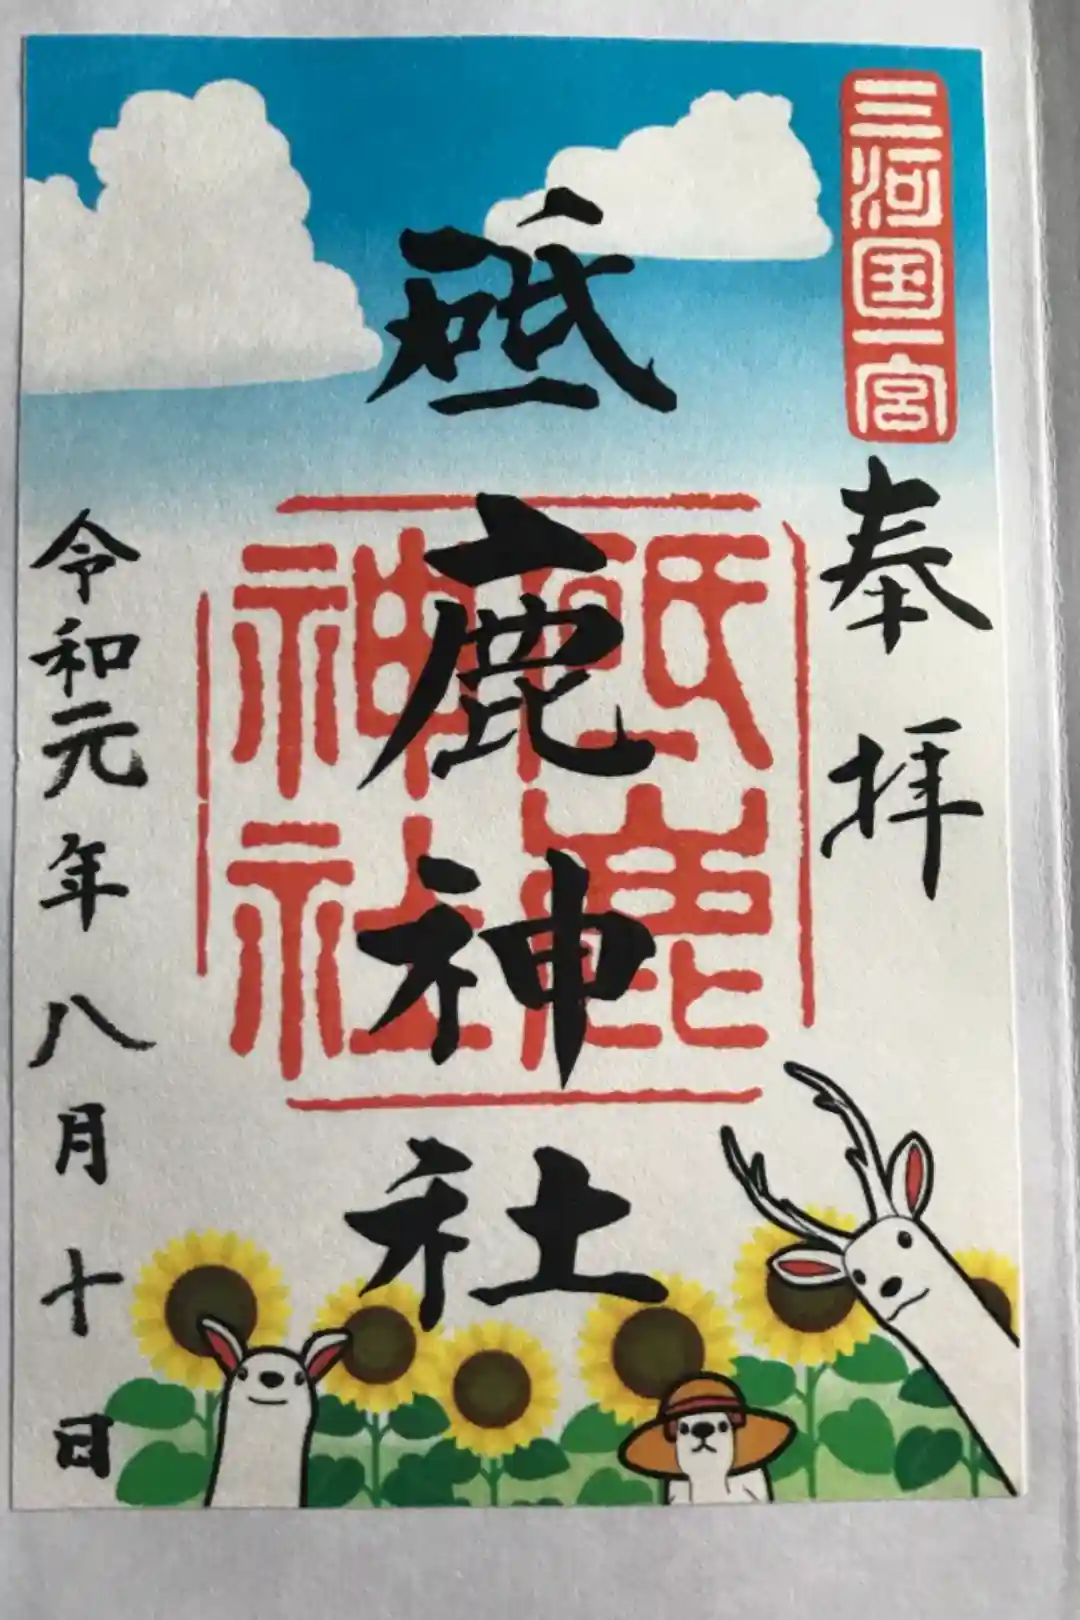 三河国一宮
奉拝
砥鹿神社
砥鹿
神社
令和元年八月十日